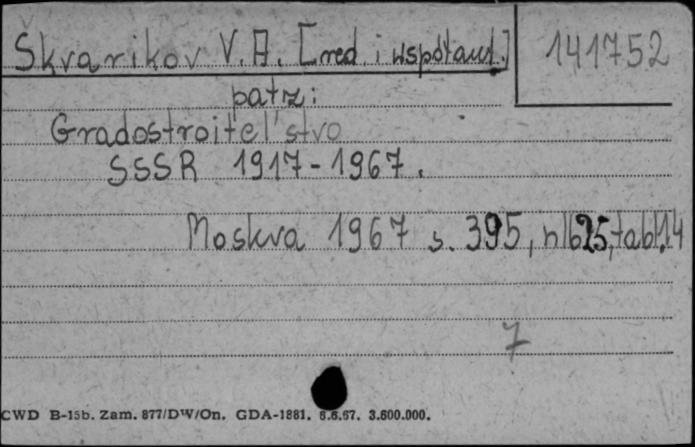 Škvarikov V. A. [red. i współaut.] 141752
patrz:
Gradostroitel'stvo
SSSR 1917-1967.
Moskva 1967 s. 395, tabl. 14
7
CWD B-15b. Zam. 877/DW/On. GDA-1881. 6.6.67. 3.600.000.